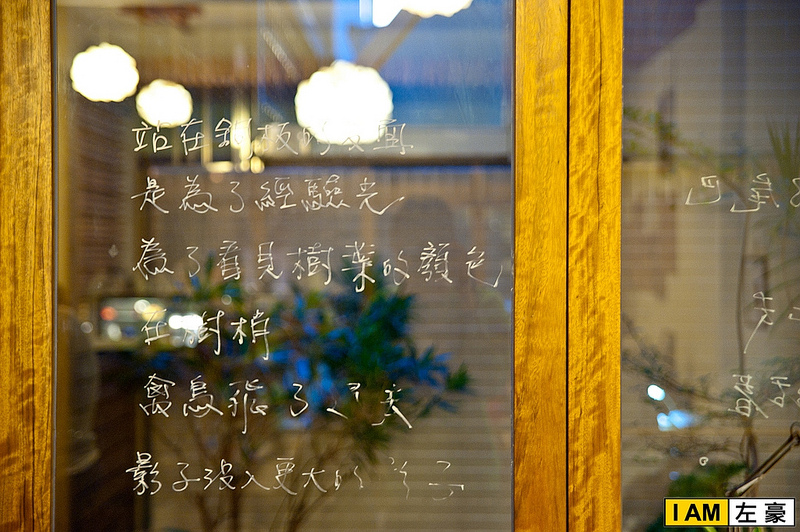 站在鋼板的後面
是為了經驗光
為了看見樹葉的顏色,
在樹梢
禽鳥飛了過去
影子沒入更大的影子
I AM 左豪